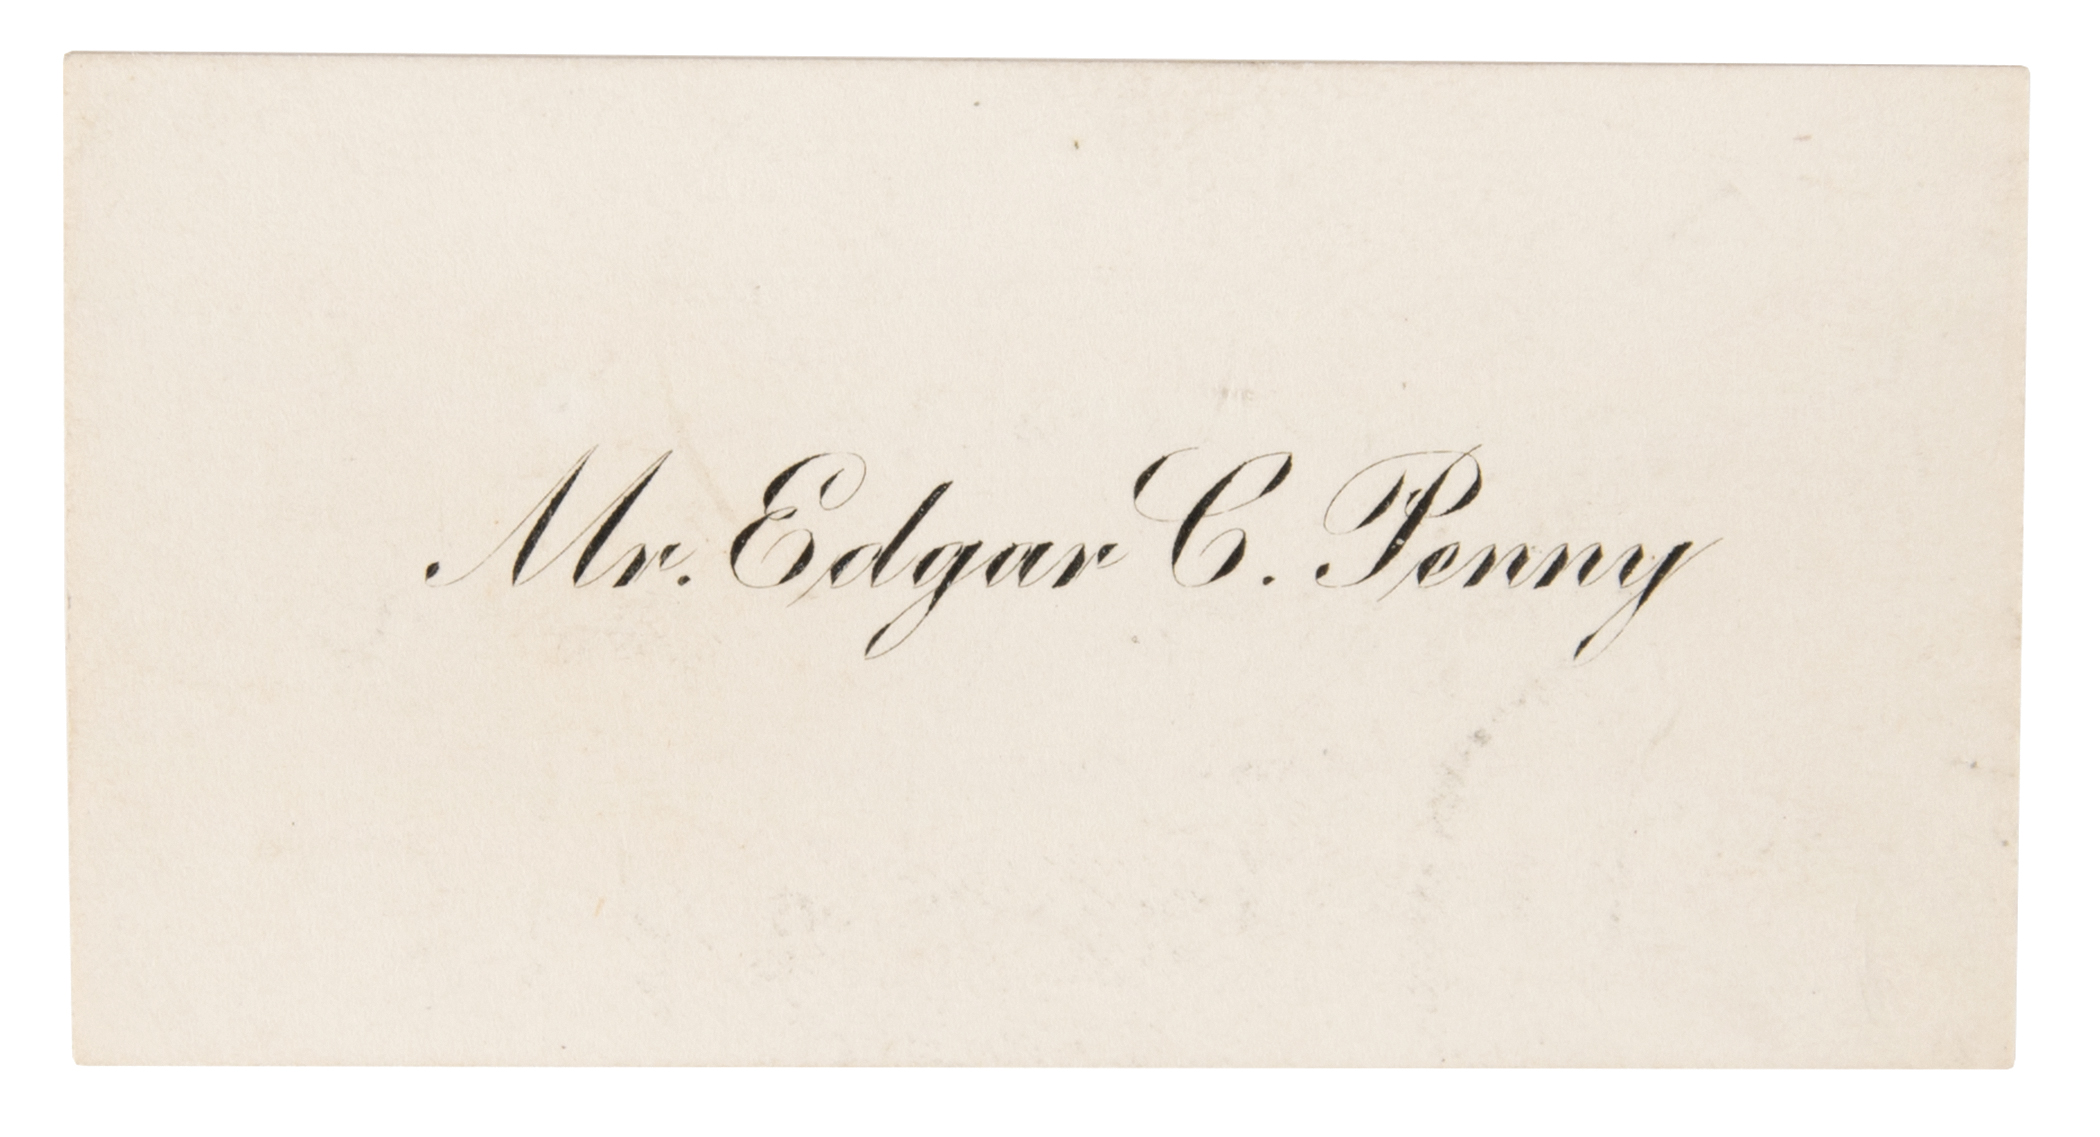 Mr. Edgar C. Penny